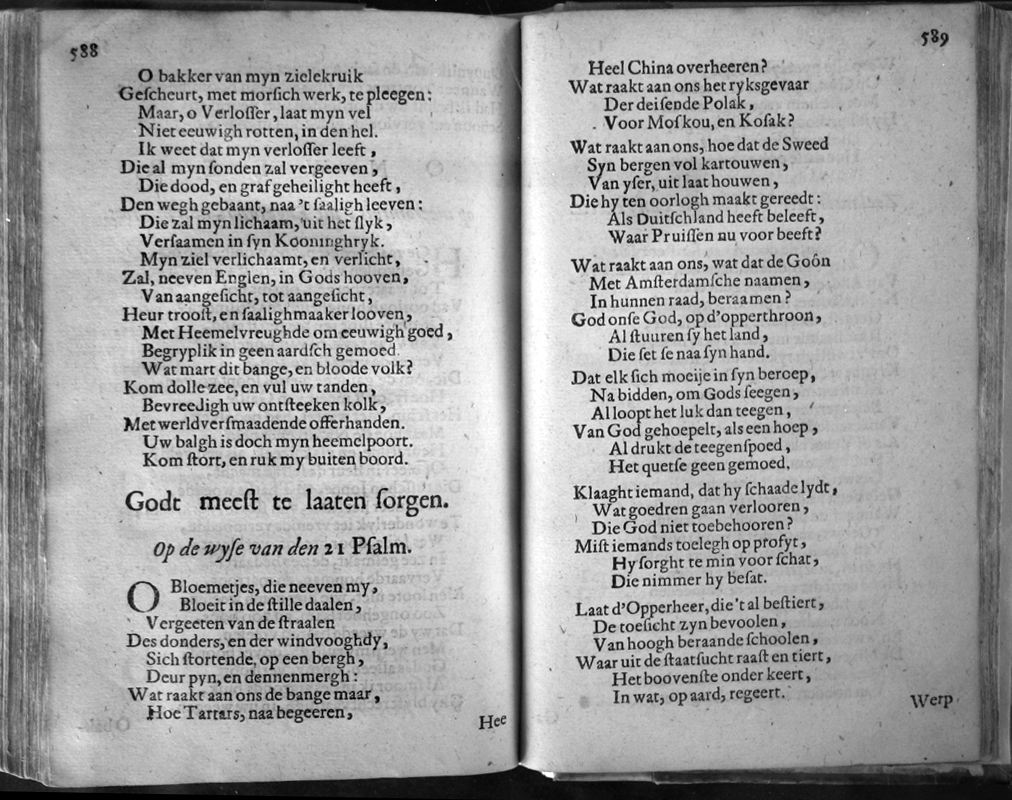 588
O bakker van myn zielekruik
Geſcheurt, met morſich werk, te pleegen:
Maar, o Verloſſer, laat myn vel
Niet eeuwigh rotten, in den hel.
Ik weet dat myn verloſſer leeft,
Die al myn ſonden zal vergeeven,
Die dood, en graf geheilight heeft,
Den wegh gebaant, naa 't ſaaligh leeven:
Die zal myn lichaam, uit het ſlyk,
Verſaamen in ſyn Kooninghryk.
Myn ziel verlichaamt, en verlicht,
Zal, neeven Englen, in Gods hooven,
Van aangeſicht, tot aangeſicht,
Heur trooſt, en ſaalighmaaker looven,
Met Heemelvreughde om eeuwigh goed,
Begryplik in geen aardſch gemoed.
Wat mart dit bange, en bloode volk?
Kom dolle zee, en vul uw tanden,
Bevreedigh uw ontſteeken kolk,
Met werldverſmaadende offerhanden.
Uw balgh is doch myn heemelpoort.
Kom ſtort, en ruk my buiten boord.
Godt meeſt te laaten ſorgen.
Op de wyſe van den 21 Pſalm.
O Bloemetjes, die neeven my,
Bloeit in de ſtille daalen,
Vergeeten van de ſtraalen
Des donders, en der windvooghdy,
Sich ſtortende, op een bergh,
Deur pyn, en dennenmergh:
Wat raakt aan ons de bange maar,
Hoe Tartars, naa begeeren,
Hee
589
Heel China overheeren?
Wat raakt aan ons het ryksgevaar
Der deiſende Polak,
Voor Moſkou, en Koſak?
Wat raakt aan ons, hoe dat de Sweed
Syn bergen vol kartouwen,
Van yſer, uit laat houwen,
Die hy ten oorlogh maakt gereedt:
Als Duitſchland heeft beleeft,
Waar Pruiſſen nu voor beeft?
Wat raakt aan ons, wat dat de Goôn
Met Amſterdamſche naamen,
In hunnen raad, beraamen?
God onſe God, op d'opperthroon,
Al ſtuuren ſy het land,
Die ſet ſe naa ſyn hand.
Dat elk ſich moeije in ſyn beroep,
Na bidden, om Gods ſeegen,
Al loopt het luk dan teegen,
Van God gehoepelt, als een hoep,
Al drukt de teegenſpoed,
Het quetſe geen gemoed.
Klaaght iemand, dat hy ſchaade lydt,
Wat goedren gaan verlooren,
Die God niet toebehooren?
Miſt iemands toelegh op profyt,
Hy ſorght te min voor ſchat,
Die nimmer hy beſat.
Laat d'Opperheer, die 't al beſtiert,
De toeſicht zyn bevoolen,
Van hoogh beraande ſchoolen,
Waar uit de ſtaatſucht raaſt en tiert,
Het boovenſte onder keert,
In wat, op aard, regeert.
Werp